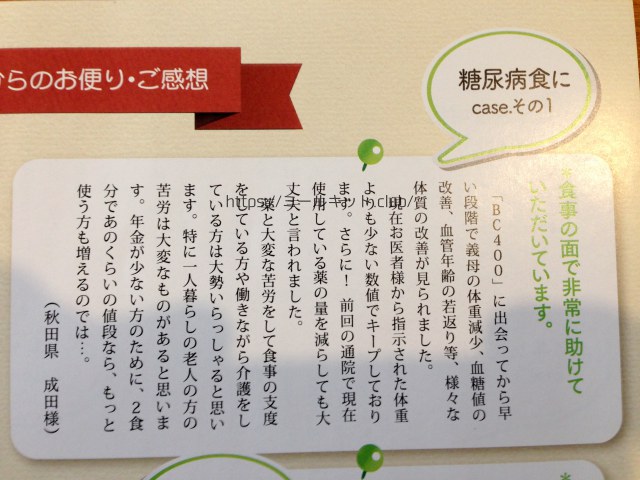 からのお便り・ご感想
糖尿病食に
case.その1
*食事の面で非常に助けて
いただいています。
「BC400」に出会ってから早
い段階で義母の体重減少、血糖値の
改善、血管年齢の若返り等、様々な
体質の改善が見られました。
現在お医者様から指示された体重
よりも少ない数値でキープしており
ます。さらに！前回の通院で現在
使用している薬の量を減らしても大
丈夫と言われました。
薬と大変な苦労をして食事の支度
をしている方や働きながら介護をし
ている方は大勢いらっしゃると思い
ます。特に一人暮らしの老人の方の
苦労は大変なものがあると思いま
す。年金が少ない方のために、2食
分であのくらいの値段なら、もっと
使う方も増えるのでは…。
（秋田県 成田様）
*